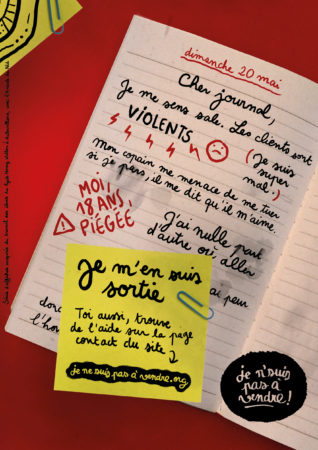 dimanche 20 mai
Cher journal,
Je me sens sale. Les clients sont
VIOLENTS
(Je suis
super
mal!)
Mon copain me menace de me tuer
si je pars, il me dit qu'il m'aime.
MOI,
18 ANS,
PIÉGÉE
J'ai nulle part
d'autre où aller
ai peur
Je m'en suis
sortie
Toi aussi, trouve
de l'aide sur la page
contact du site
jenesuispasàvendre.org
je n'suis
pas à
vendre!